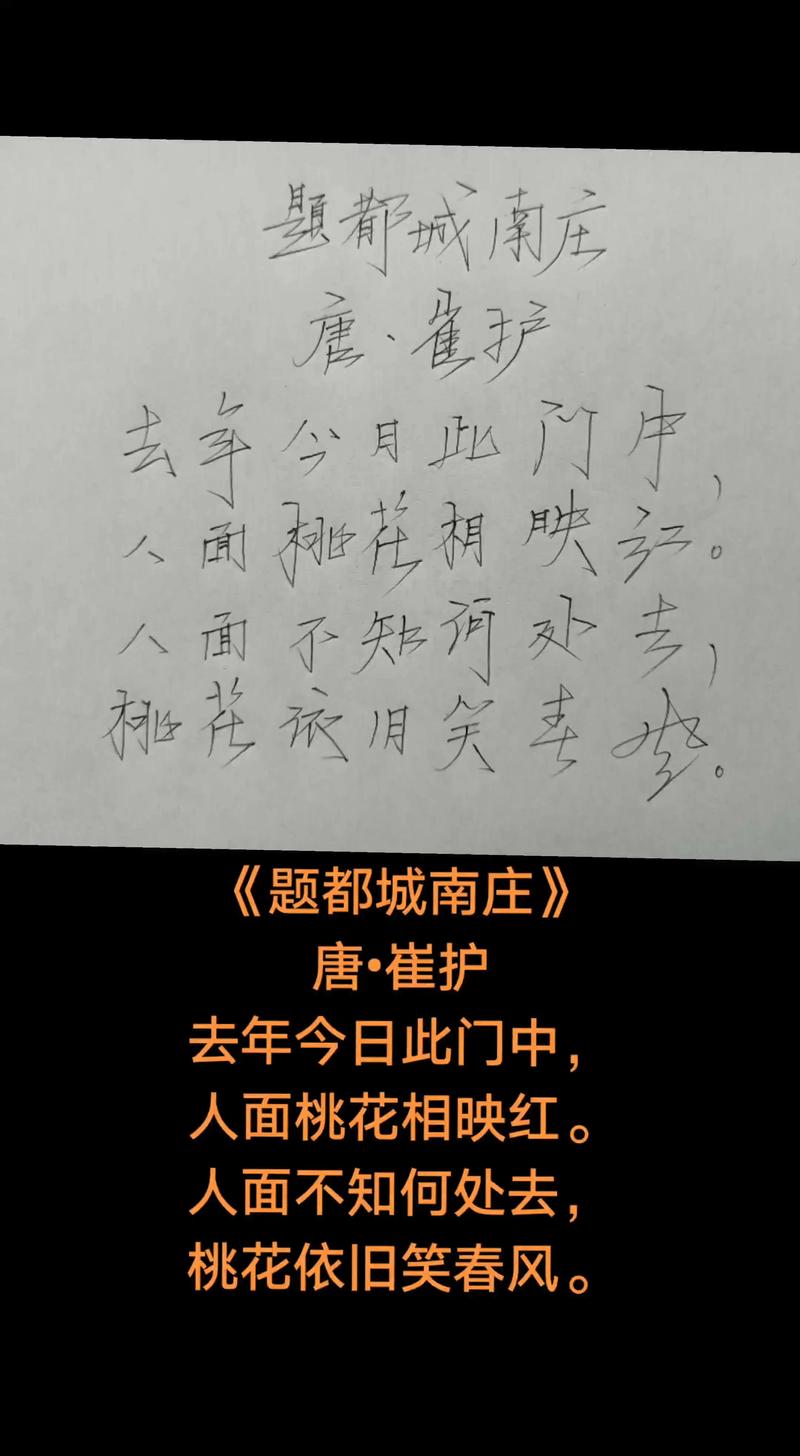 题都城南庄
唐·崔护
去年今日此门中,
人面桃花相映红。
人面不知何处去,
桃花依旧笑春风。
《题都城南庄》
唐•崔护
去年今日此门中，
人面桃花相映红。
人面不知何处去，
桃花依旧笑春风。